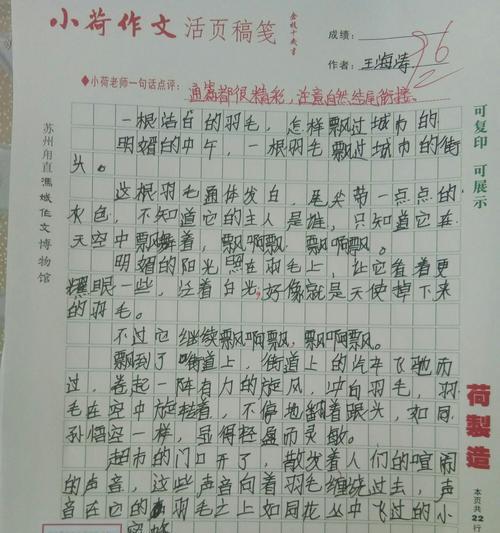 小荷作文 活页稿笺
成绩:
96
作者: 王海涛
2
◆小荷老师一句话点评: 通篇都很精彩,注意自然结尾衔接。
一根洁白的羽毛,怎样飘过城市的
明媚的中午,一根羽毛飘过城市的街
头。
这根羽毛通体发白,尾尖带一点点的
灰色,不知道它的主人是谁,只知道它在
天空中飘舞着,飘啊飘,飘啊飘。
明媚的阳光照在羽毛上,让它看着更
耀眼一些,泛着白光,好像就是天使掉下来
的羽毛。
不过它继续飘啊飘,飘啊飘。
飘到了街道上,街道上的汽车飞驰而
过,卷起一阵有力的旋风,冲白羽毛,羽
毛在空中旋转着,不停地翻着跟头,如同
孙悟空一样,显得轻盈而灵敏。
超市的门口开了,散发着人们的喧闹
的声音,这些声音向着羽毛缠绕过去,声
音在它的羽毛之上如同花丛中飞过的小
蜜蜂
苏州甪直
作文博物馆
可复印 可展示
荷製造
本页共22行